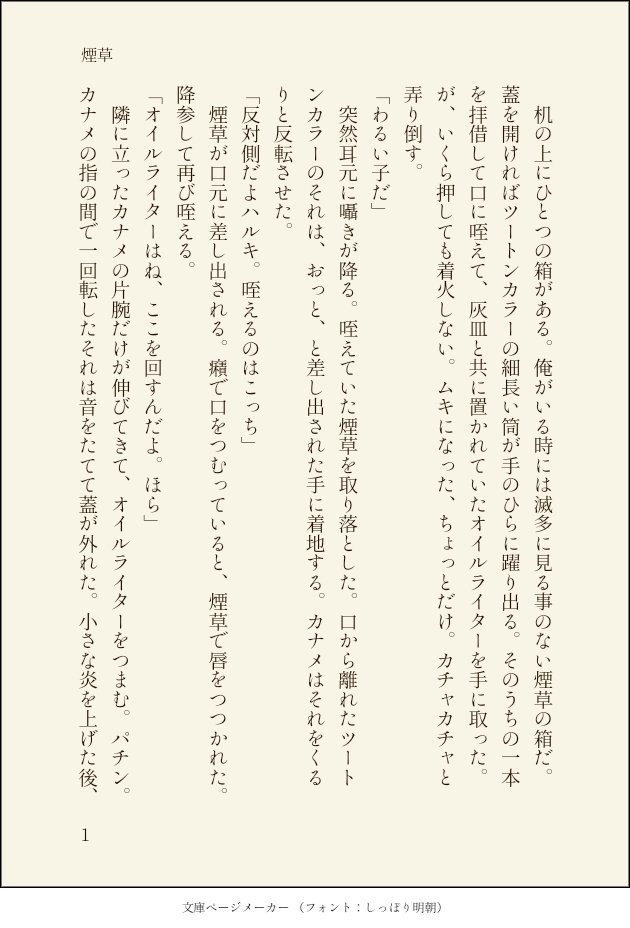 煙草
　机の上にひとつの箱がある。俺がいる時には滅多に見る事のない煙草の箱だ。
蓋を開ければツートンカラーの細長い筒が手のひらに躍り出る。そのうちの一本
を拝借して口に咥えて、灰皿と共に置かれていたオイルライターを手に取った。
が、いくら押しても着火しない。ムキになった、ちょっとだけ。カチャカチャと
弄り倒す。
「わるい子だ」
　突然耳元に囁きが降る。咥えていた煙草を取り落とした。口から離れたツート
ンカラーのそれは、おっと、と差し出された手に着地する。カナメはそれをくる
りと反転させた。
「反対側だよハルキ。咥えるのはこっち」
　煙草が口元に差し出される。癪で口をつむっていると、煙草で唇をつつかれた。
降参して再び咥える。
「オイルライターはね、ここを回すんだよ。ほら」
　隣に立ったカナメの片腕だけが伸びてきて、オイルライターをつまむ。パチン。
カナメの指の間で一回転したそれは音をたてて蓋が外れた。小さな炎を上げた後、
1
文庫ページメーカー （フォント：しっぽり明朝）